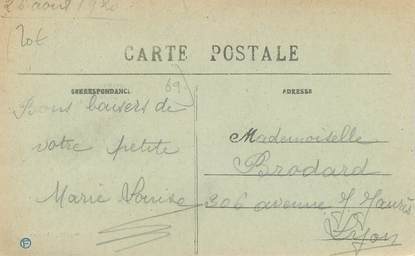 26 août 1920
CARTE POSTALE
CORRESPONDANCE
69
ADRESSE
Bons baisers de
votre petite
Marie Louise
Mademoiselle
Brodard
306 avenue J Jaurès
Lyon